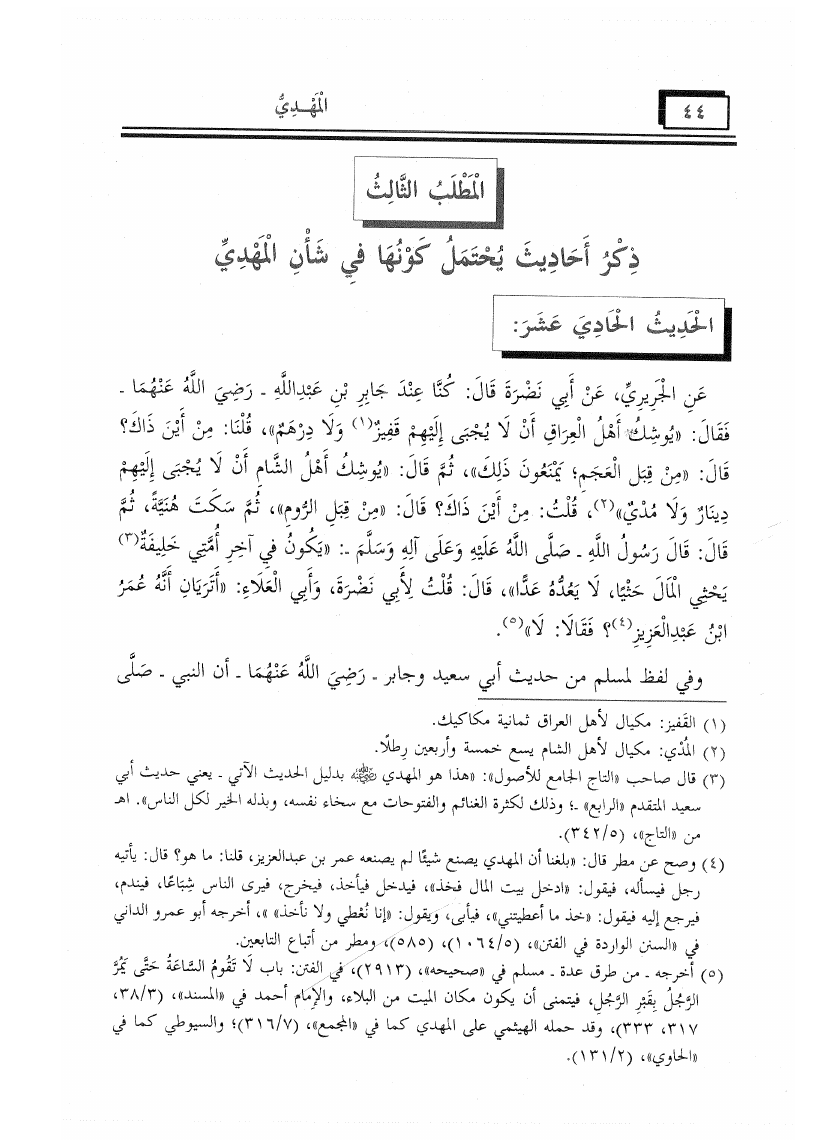 ٤٤
المَهْـدِيُّ
المَطْلَبُ الثَّالِثُ
ذِكْرُ أَحَادِيثَ يُحْتَمَلُ كَوْنُهَا فِي شَأْنِ المَهْدِيِّ
الحَدِيثُ الحَادِيَ عَشَرَ:
عَنِ الجُرَيرِيِّ، عَنْ أَبِي نَضْرَةَ قَالَ: كُنَّا عِنْدَ جَابِرِ بْنِ عَبْدِاللَّهِ ـ رَضِيَ اللَّهُ عَنْهُمَا ـ
فَقَالَ: «يُوشِكُ أَهْلُ العِرَاقِ أَنْ لَا يُجْبَى إِلَيْهِمْ قَفِيزٌ(١) وَلَا دِرْهَمٌ»، قُلْنَا: مِنْ أَيْنَ ذَاكَ؟
قَالَ: «مِنْ قِبَلِ العَجَمِ؛ يَمْنَعُونَ ذَلِكَ»، ثُمَّ قَالَ: «يُوشِكُ أَهْلُ الشَّامِ أَنْ لَا يُجْبَى إِلَيْهِمْ
دِينَارٌ وَلَا مُدْيٌ»(٢)، قُلْتُ: مِنْ أَيْنَ ذَاكَ؟ قَالَ: «مِنْ قِبَلِ الرُّومِ»، ثُمَّ سَكَتَ هُنَيَّةً، ثُمَّ
قَالَ: قَالَ رَسُولُ اللَّهِ ـ صَلَّى اللَّهُ عَلَيْهِ وَعَلَى آلِهِ وَسَلَّمَ ـ: «يَكُونُ فِي آخِرِ أُمَّتِي خَلِيفَةٌ(٣)
يَحْثِي المَالَ حَثْيًا، لَا يَعُدُّهُ عَدًّا»، قَالَ: قُلْتُ لِأَبِي نَضْرَةَ، وَأَبِي العَلَاءِ: «أَتَرَيَانِ أَنَّهُ عُمَرُ
ابْنُ عَبْدِالعَزِيزِ(٤)؟ فَقَالَا: لَا»(٥).
وفي لفظ لمسلم من حديث أبي سعيد وجابر ـ رَضِيَ اللَّهُ عَنْهُمَا ـ أن النبي ـ صَلَّى
(١) القَفيز: مكيال لأهل العراق ثمانية مكاكيك.
(٢) المُدْي: مكيال لأهل الشام يسع خمسة وأربعين رِطلًا.
(٣) قال صاحب «التاج الجامع للأصول»: «هذا هو المهدي ﷺ بدليل الحديث الآتي ـ يعني حديث أبي
سعيد المتقدم «الرابع» ـ؛ وذلك لكثرة الغنائم والفتوحات مع سخاء نفسه، وبذله الخير لكل الناس». اهـ
من «التاج»، (٣٤٢/٥).
(٤) وصح عن مطر قال: «بلغنا أن المهدي يصنع شيئًا لم يصنعه عمر بن عبدالعزيز، قلنا: ما هو؟ قال: يأتيه
رجل فيسأله، فيقول: «ادخل بيت المال فخذ»، فيدخل فيأخذ، فيخرج، فيرى الناس شِبَاعًا، فيندم،
فيرجع إليه فيقول: «خذ ما أعطيتني»، فيأبى، ويقول: «إنا نُعْطي ولا نأخذ» »، أخرجه أبو عمرو الداني
في «السنن الواردة في الفتن»، (١٠٦٤/٥)، (٥٨٥)، ومطر من أتباع التابعين.
(٥) أخرجه ـ من طرق عدة ـ مسلم في «صحيحه»، (٢٩١٣)، في الفتن: باب لَا تَقُومُ السَّاعَةُ حَتَّى يَمُرَّ
الرَّجُلُ بِقَبْرِ الرَّجُلِ، فيتمنى أن يكون مكان الميت من البلاء، والإمام أحمد في «المسند»، (٣٨/٣،
٣١٧، ٣٣٣)، وقد حمله الهيثمي على المهدي كما في «المجمع»، (٣١٦/٧)؛ والسيوطي كما في
«الحاوي»، (١٣١/٢).